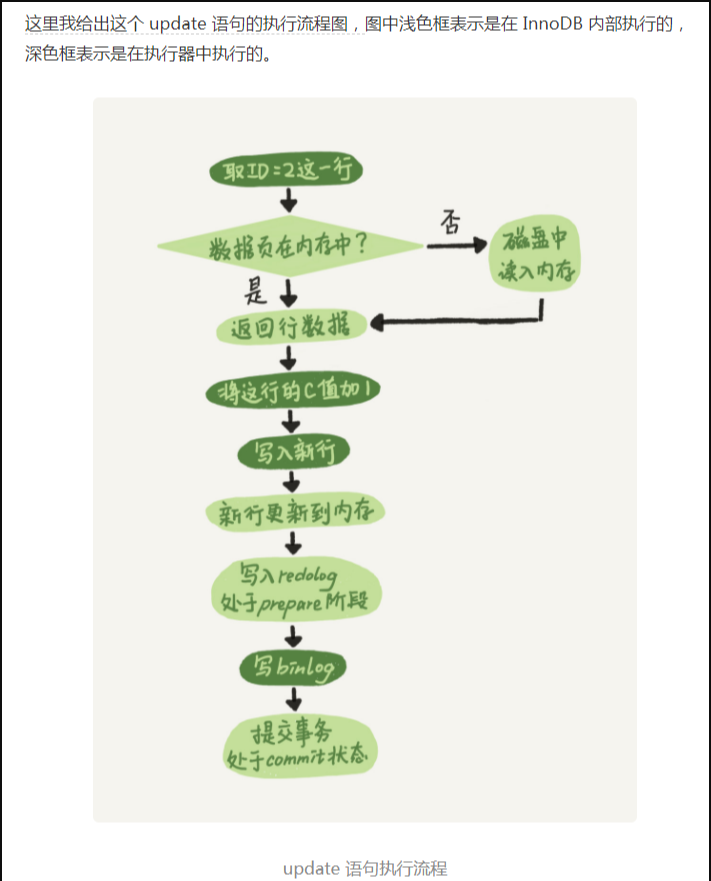 这里我给出这个 update 语句的执行流程图，图中浅色框表示是在 InnoDB 内部执行的，
深色框表示是在执行器中执行的。
取ID=2这一行
数据页在内存中？
否
磁盘中
读入内存
是
返回行数据
将这行的C值加1
写入新行
新行更新到内存
写入redolog
处于prepare阶段
写binlog
提交事务
处于commit状态
update 语句执行流程